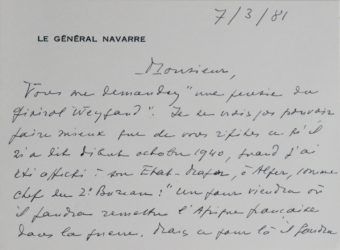 7/3/81
LE GÉNÉRAL NAVARRE
Monsieur,
Vous me demandez "une pensée du
Général Weygand". Je ne crois pas pouvoir
faire mieux que de vous répéter ce qu'il
m'a dit début octobre 1940, quand j'ai
été affecté à son Etat-Major, à Alger, comme
chef du 2e Bureau : "Un jour viendra où
il faudra remettre l'Afrique française
dans la guerre. Mais ce jour là il faudra